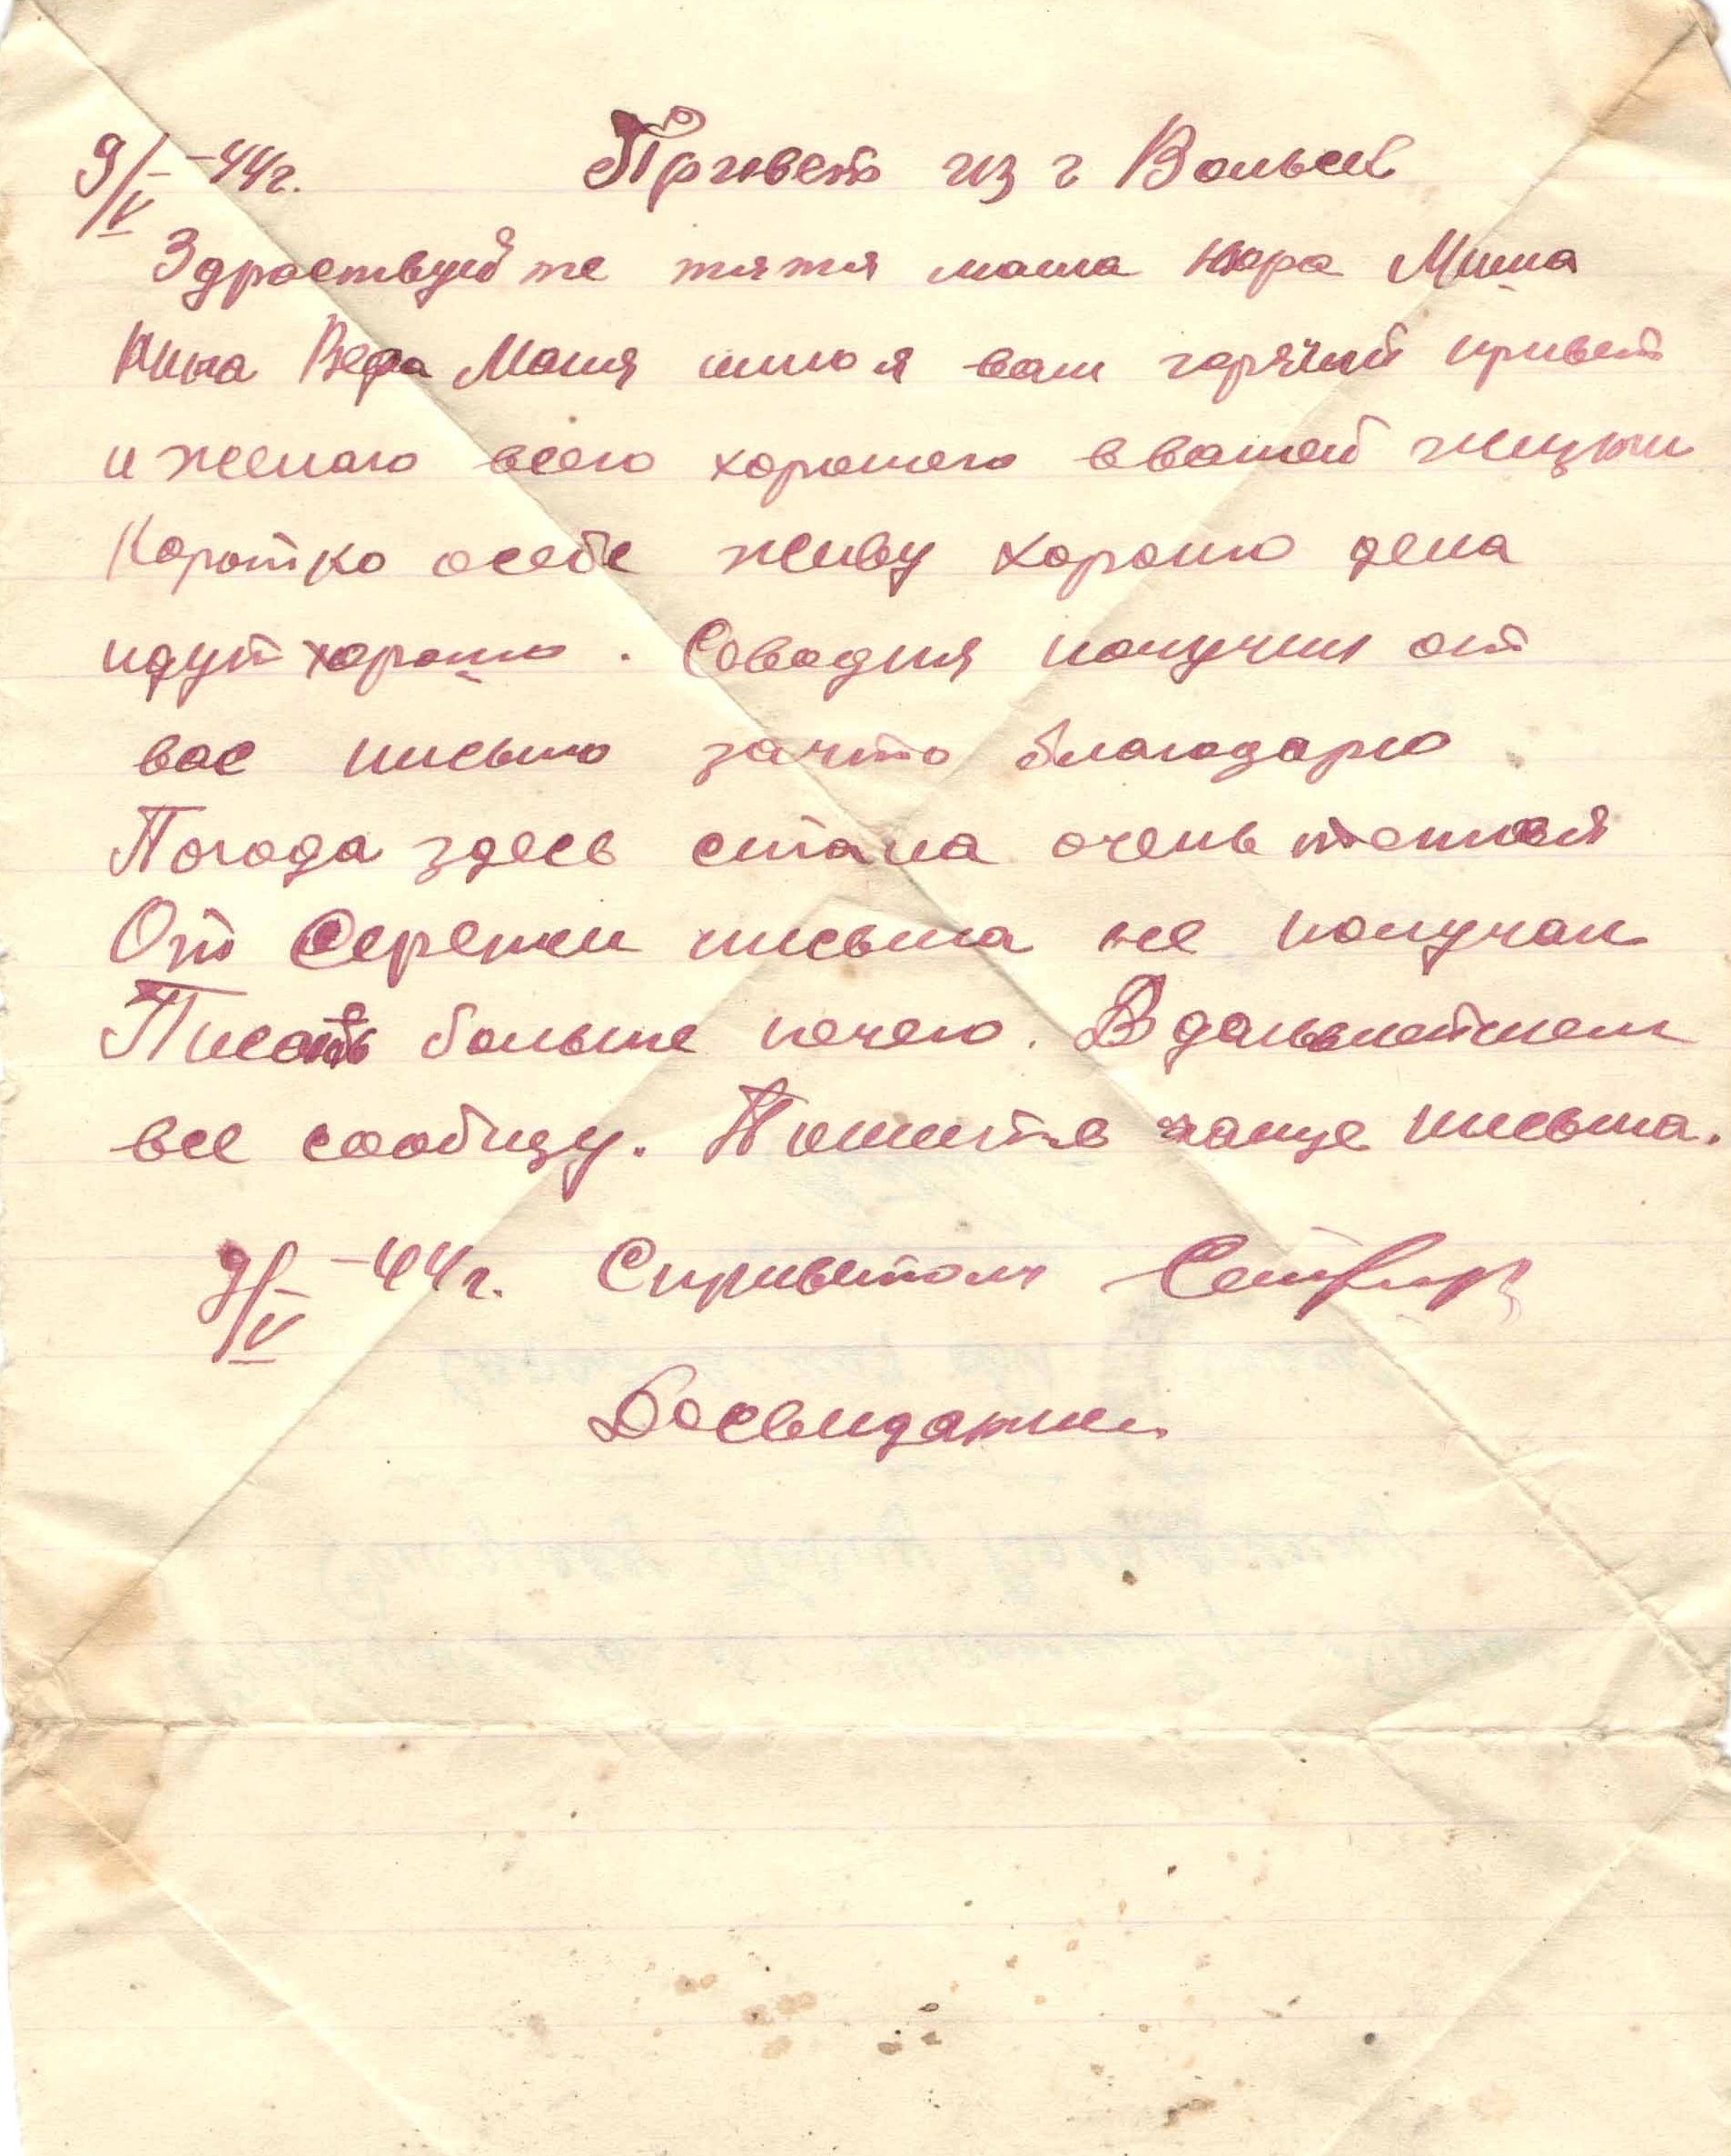 9/V-44г. Привет из г Вольск
Здраствуйте тятя мама Нюра Миша
Нина Вера Маня шлю я вам горячий привет
и желаю всего хорошего в вашей жизни
Коротко осебе живу хорошо дела
идут хорошо. Соводня получил от
вас письмо зачто благодарю
Погода здесь стала очень теплая
От Сережи письма не получал
Писать больше нечего. В дальнейшем
все сообщу. Пишите чаще письма.
9/V-44г. Сприветом
Досвидания